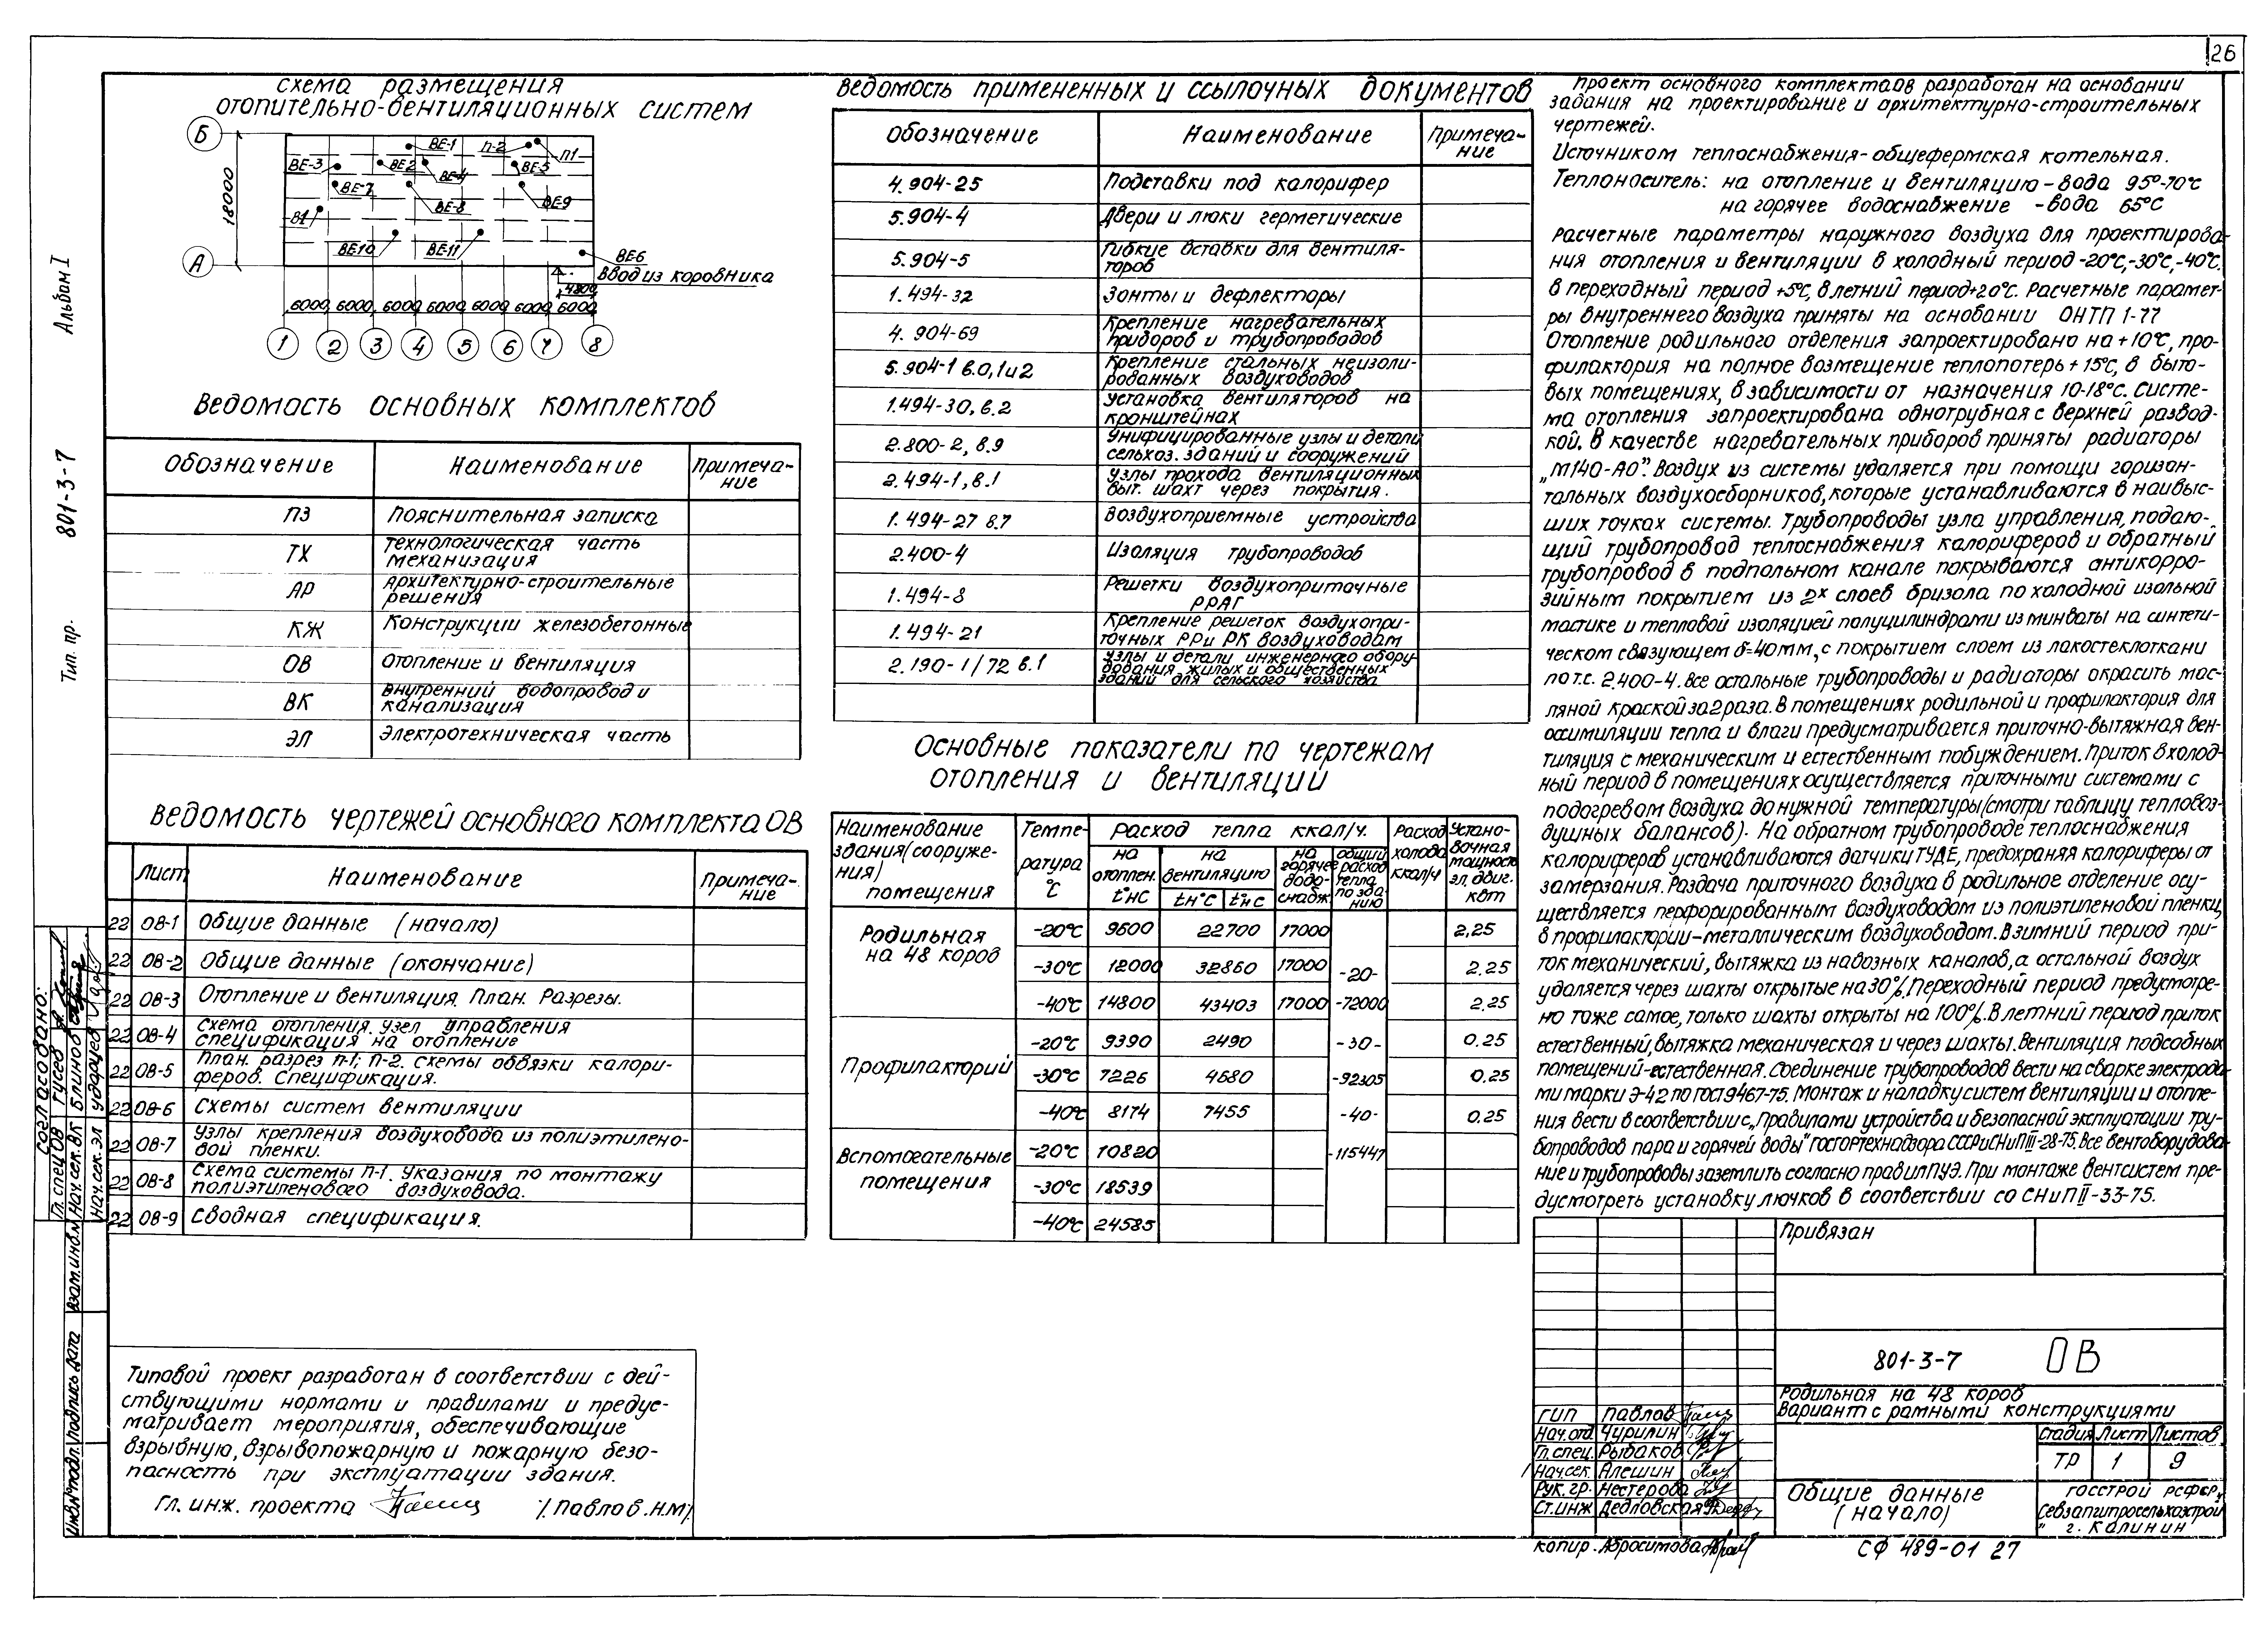 26
Схема размещения
отопительно-вентиляционных систем
Б
А
18000
ВЕ-1
П-2
П1
ВЕ-3
ВЕ2
ВЕ-4
ВЕ-5
ВЕ-7
ВЕ-8
ВЕ9
В1
ВЕ10
ВЕ-11
ВЕ6
Ввод из коровника
4800
6000 6000 6000 6000 6000 6000 6000
1 2 3 4 5 6 7 8
Ведомость основных комплектов
Обозначение Наименование Примеча-
ние
ПЗ Пояснительная записка
ТХ Технологическая часть
механизация
АР Архитектурно-строительные
решения
КЖ Конструкции железобетонные
ОВ Отопление и вентиляция
ВК Внутренний водопровод и
канализация
ЭЛ Электротехническая часть
Ведомость чертежей основного комплекта ОВ
Лист Наименование Примеча-
ние
22 ОВ-1 Общие данные (начало)
22 ОВ-2 Общие данные (окончание)
22 ОВ-3 Отопление и вентиляция. План. Разрезы.
22 ОВ-4 Схема отопления. Узел управления
спецификация на отопление
22 ОВ-5 План. разрез П-1; П-2. Схемы обвязки калори-
феров. Спецификация.
22 ОВ-6 Схемы систем вентиляции
22 ОВ-7 Узлы крепления воздуховода из полиэтилено-
вой пленки.
22 ОВ-8 Схема системы П-1. Указания по монтажу
полиэтиленового воздуховода.
22 ОВ-9 Сводная спецификация.
Типовой проект разработан в соответствии с дей-
ствующими нормами и правилами и предус-
матривает мероприятия, обеспечивающие
взрывную, взрывопожарную и пожарную безо-
пасность при эксплуатации здания.
Гл. инж. проекта /Павлов.Н.М/
Ведомость примененных и ссылочных документов
Обозначение Наименование Примеча-
ние
4.904-25 Подставки под калорифер
5.904-4 Двери и люки герметические
5.904-5 Гибкие вставки для вентиля-
торов
1.494-32 Зонты и дефлекторы
4.904-69 Крепление нагревательных
приборов и трубопроводов
5.904-1 в.0,1и2 Крепление стальных неизоли-
рованных воздуховодов
1.494-30, в.2 Установка вентиляторов на
кронштейнах
2.800-2, в.9 Унифицированные узлы и детали
сельхоз. зданий и сооружений
2.494-1, в.1 Узлы прохода вентиляционных
выт. шахт через покрытия.
1.494-27 в.7 Воздухоприемные устройства
2.400-4 Изоляция трубопроводов
1.494-8 Решетки воздухоприточные
РРАГ
1.494-21 Крепление решеток воздухопри-
точных РР и РК воздуховодам
2.190-1/72 в.1 Узлы и детали инженерного обору-
дования жилых и общественных
зданий для сельского хозяйства
Основные показатели по чертежам
отопления и вентиляций
Наименование
здания(сооруже-
ния)
помещения
Темпе-
ратура
°С
Расход тепла ккал/ч.
на
отоплен.
t°нс
на
вентиляцию
tн°с t°нс
на
горячее
водо-
снабж.
общий
расход
тепла
по зда-
нию
Расход
холода
ккал/ч
Устано-
вочная
мощность
эл. двиг.
квт
Родильная
на 48 коров
-20°С 9600 22700 17000 2,25
-30°С 12000 32860 17000 -20- 2.25
-40°С 14800 43403 17000 -72000 2.25
Профилакторий
-20°С 9390 2490 -30- 0.25
-30°С 7226 4680 -92305 0.25
-40°С 8174 7455 -40- 0.25
Вспомогательные
помещения
-20°С 10820 -115447
-30°С 18539
-40°С 24585
Проект основного комплектаов разработан на основании
задания на проектирование и архитектурно-строительных
чертежей.
Источником теплоснабжения-общефермская котельная.
Теплоноситель: на отопление и вентиляцию-вода 95°-70°С
на горячее водоснабжение -вода 65°С
Расчетные параметры наружного воздуха для проектирова-
ния отопления и вентиляции в холодный период -20°С,-30°С,-40°С.
в переходный период +5°С, в летний период+20°С. Расчетные парамет-
ры внутреннего воздуха приняты на основании ОНТП 1-77
Отопление родильного отделения запроектировано на +10°С, про-
филактория на полное возмещение теплопотерь +15°С, в быто-
вых помещениях, в зависимости от назначения 10-18°С. Систе-
ма отопления запроектирована однотрубная с верхней развод-
кой. В качестве нагревательных приборов приняты радиаторы
„М140-АО". Воздух из системы удаляется при помощи горизон-
тальных воздухосборников, которые устанавливаются в наивыс-
ших точках системы. Трубопроводы узла управления, подаю-
щий трубопровод теплоснабжения калориферов и обратный
трубопровод в подпольном канале покрываются антикорро-
зийным покрытием из 2х слоев бризола по холодной изольной
мастике и тепловой изоляцией полуцилиндрами из минваты на синтети-
ческом связующем δ=40мм, с покрытием слоем из лакостеклоткани
по т.с. 2.400-4. Все остальные трубопроводы и радиаторы окрасить мас-
ляной краской за 2 раза. В помещениях родильной и профилактория для
ассимиляции тепла и влаги предусматривается приточно-вытяжная вен-
тиляция с механическим и естественным побуждением. Приток в холод-
ный период в помещениях осуществляется приточными системами с
подогревом воздуха до нужной температуры(смотри таблицу тепловоз-
душных балансов). На обратном трубопроводе теплоснабжения
калориферов устанавливаются датчики ТУДЕ, предохраняя калориферы от
замерзания. Раздача приточного воздуха в родильное отделение осу-
ществляется перфорированным воздуховодом из полиэтиленовой пленки,
в профилактории-металлическим воздуховодом. В зимний период при-
ток механический, вытяжка из навозных каналов, а остальной воздух
удаляется через шахты открытые на 30%. Переходный период предусмотре-
но тоже самое, только шахты открыты на 100%. В летний период приток
естественный, вытяжка механическая и через шахты. Вентиляция подсобных
помещений-естественная. Соединение трубопроводов вести на сварке электрода-
ми марки Э-42 по ГОСТ 9467-75. Монтаж и наладку систем вентиляции и отопле-
ния вести в соответствии с „Правилами устройства и безопасной эксплуатации тру-
бопроводов пара и горячей воды" Госгортехнадзора СССР и СНиП III-28-75. Все вентоборудова-
ние и трубопроводы заземлить согласно правил ПУЭ. При монтаже вентсистем пре-
дусмотреть установку лючков в соответствии со СНиП II-33-75.
Привязан
801-3-7 ОВ
Родильная на 48 коров
Вариант с рамными конструкциями
ГИП Павлов
Нач.отд Чурилин
Гл.спец. Рыбаков
Нач.сек. Алешин
Рук. гр. Нестерова
Ст.инж Дедловская
Стадия Лист Листов
ТР 1 9
Общие данные
(начало)
Госстрой РСФСР
Севзапгипросельхозстрой
г. Калинин
копир. Абросимова
СФ 489-01 27
Альбом I
801-3-7
Тип. пр.
Согласовано:
Гл. спец ОВ Гусев
Нач.сек.ВК Блинов
Нач.сек. эл Ударцев
Взам.инв.№
Подпись дата
Инв.№подл.